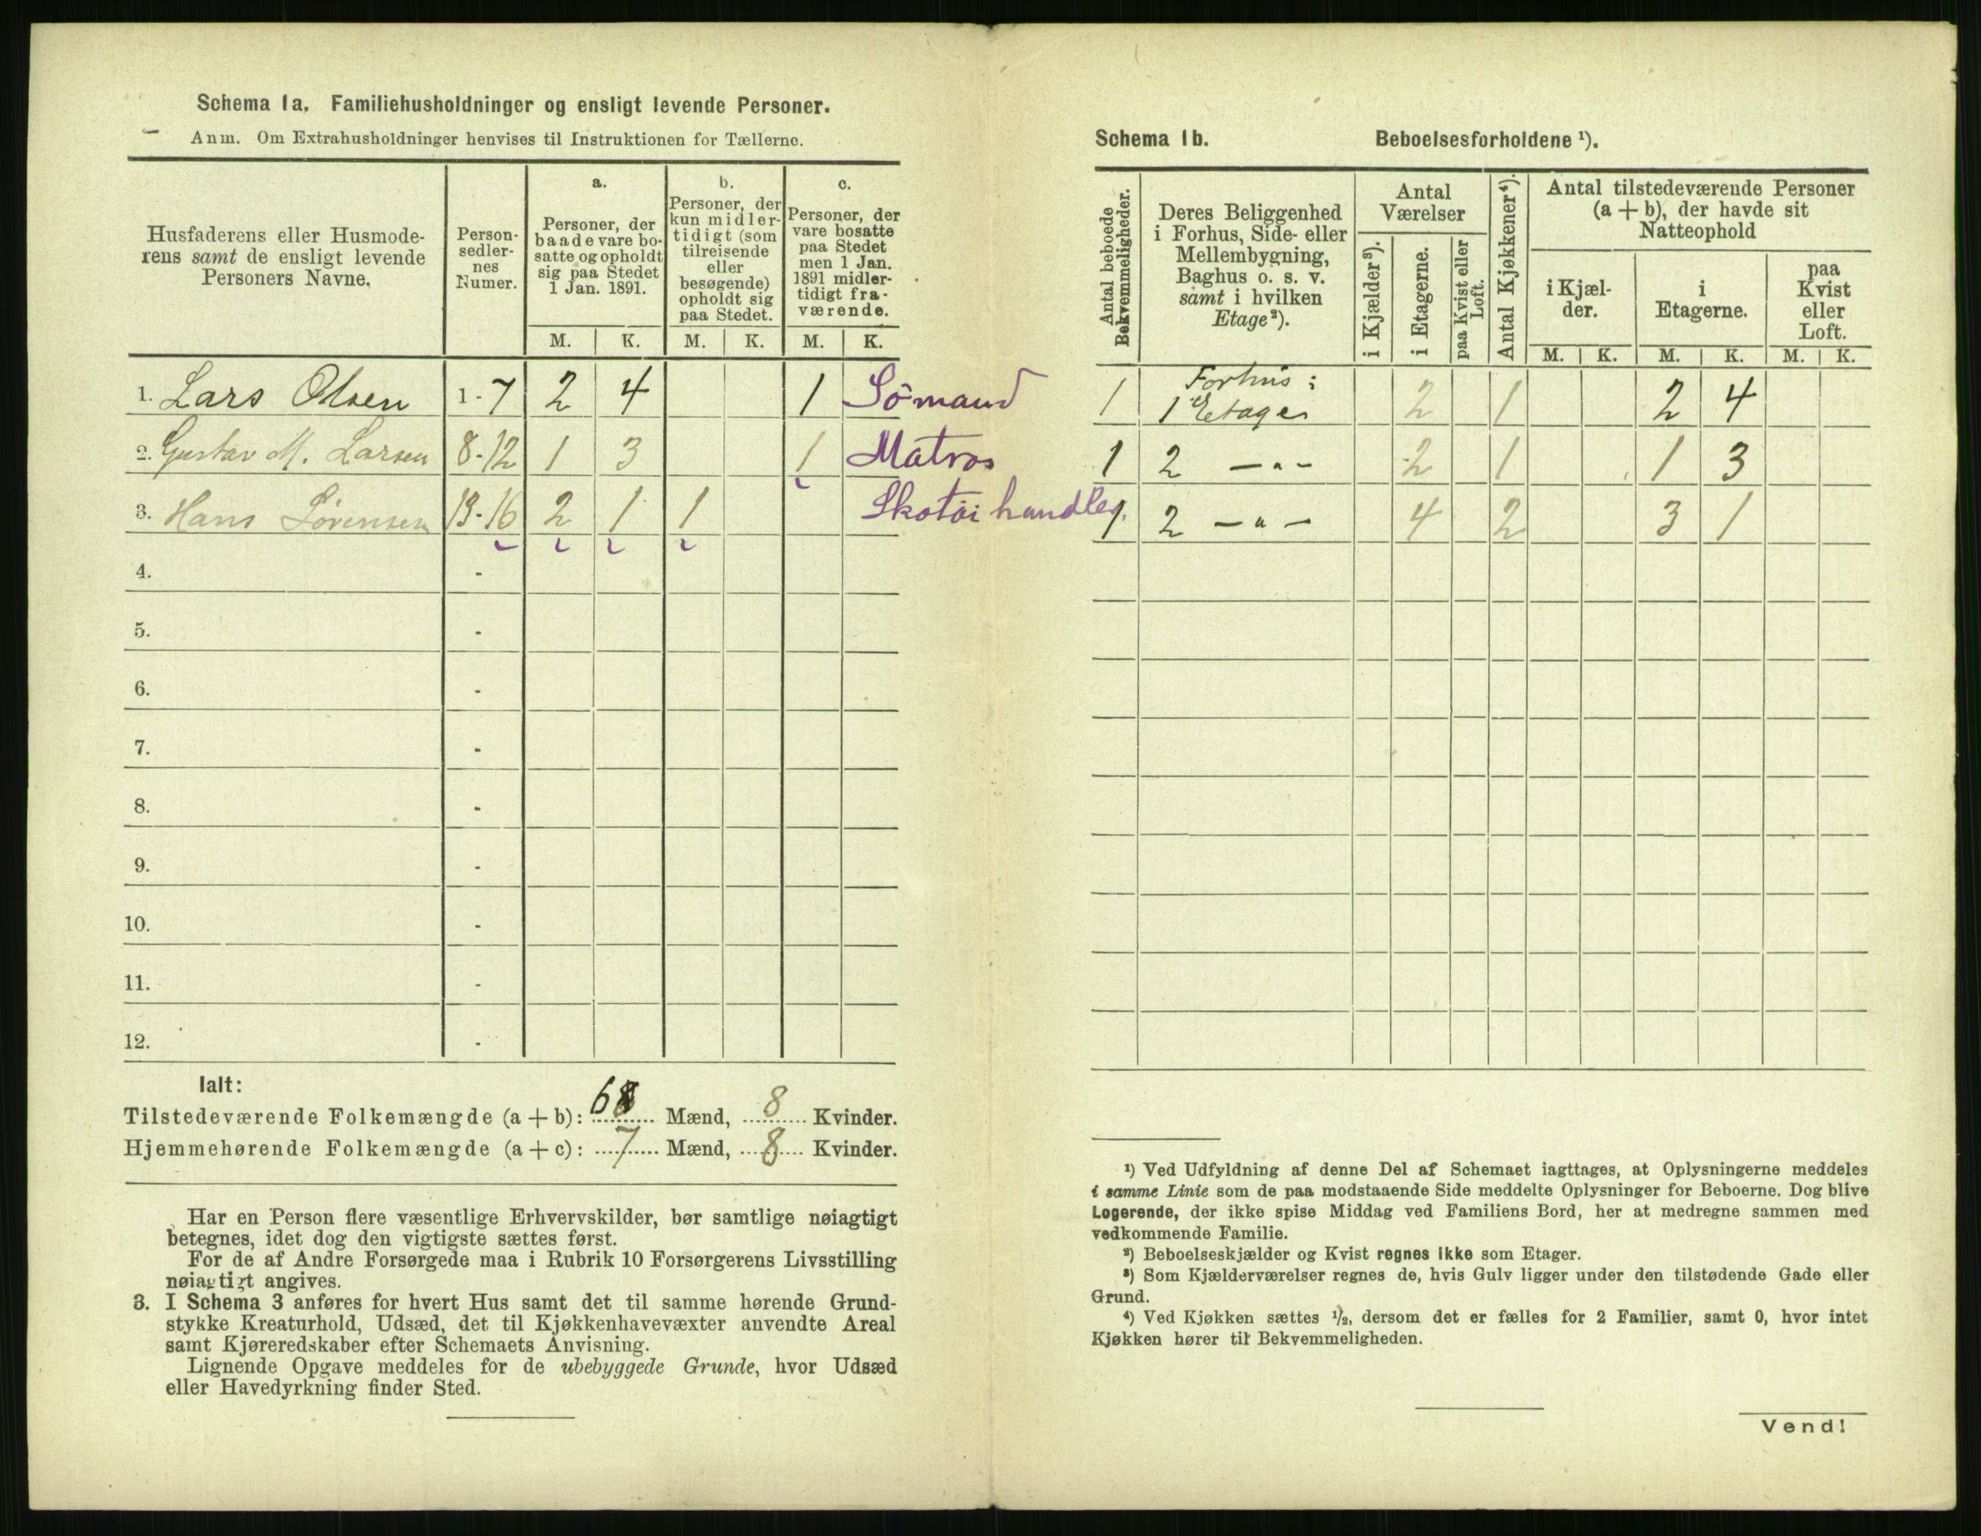 Schema 1a. Familiehusholdninger og ensligt levende Personer.
Anm. Om Extrahusholdninger henvises til Instruktionen for Tællerne.
Husfaderens eller Husmode-
rens samt de ensligt levende
Personers Navne.
Person-
sedler-
nes
Numer.
a.
Personer, der
baade vare bo-
satte og opholdt
sig paa Stedet
1 Jan. 1891.
b.
Personer, der
kun midler-
tidigt (som
tilreisende
eller
besøgende)
opholdt sig
paa Stedet.
c.
Personer, der
vare bosatte
paa Stedet
men 1 Jan.
1891 midler-
tidigt fra-
værende.
M. K. M. K. M. K.
1. Lars Olsen 1-7 2 4 1 Sömand
2. Gustav M. Larsen 8-12 1 3 1 Matros
3. Hans Sørensen 13-16 2 1 1 Skotöi handler.
4. -
5. -
6. -
7. -
8. -
9. -
10. -
11. -
12. -
Ialt:
Tilstedeværende Folkemængde (a + b): 6 Mænd, 8 Kvinder.
Hjemmehørende Folkemængde (a + c): 7 Mænd, 8 Kvinder.
Har en Person flere væsentlige Erhvervskilder, bør samtlige nøiagtigt
betegnes, idet dog den vigtigste sættes først.
For de af Andre Forsørgede maa i Rubrik 10 Forsørgerens Livsstilling
nøiagtigt angives.
3. I Schema 3 anføres for hvert Hus samt det til samme hørende Grund-
stykke Kreaturhold, Udsæd, det til Kjøkkenhavevæxter anvendte Areal
samt Kjøreredskaber efter Schemaets Anvisning.
Lignende Opgave meddeles for de ubebyggede Grunde, hvor Udsæd
eller Havedyrkning finder Sted.
Schema 1b. Beboelsesforholdene ¹).
Antal beboede
Bekvemmeligheder.
Deres Beliggenhed
i Forhus, Side- eller
Mellembygning,
Baghus o. s. v.
samt i hvilken
Etage²).
Antal
Værelser
i Kjælder³).
i Etagerne.
paa Kvist eller
Loft.
Antal Kjøkkener⁴).
Antal tilstedeværende Personer
(a + b), der havde sit
Natteophold
i Kjæl-
der.
i
Etagerne.
paa
Kvist
eller
Loft.
M. K. M. K. M. K.
1 Forhus:
1 Etage 2 1 2 4
1 2 — „ — 2 1 1 3
1 2 — „ — 4 2 3 1
¹) Ved Udfyldning af denne Del af Schemaet iagttages, at Oplysningerne meddeles
i samme Linie som de paa modstaaende Side meddelte Oplysninger for Beboerne. Dog blive
Logerende, der ikke spise Middag ved Familiens Bord, her at medregne sammen med
vedkommende Familie.
²) Beboelseskjælder og Kvist regnes ikke som Etager.
³) Som Kjælderværelser regnes de, hvis Gulv ligger under den tilstødende Gade eller
Grund.
⁴) Ved Kjøkken sættes ½, dersom det er fælles for 2 Familier, samt 0, hvor intet
Kjøkken hører til Bekvemmeligheden.
Vend!